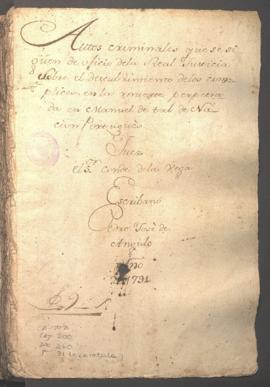 Autos criminales que se si
guen de oficio dela Real Justicia
Sobre el descubrimiento delos com
plices en la muerte perpetra
da en Manuel de tal de Na
cion Portugués
Juez
el Sr. Conde dela Vega
Escribano
Pedro José de
Angulo
Año
de 1791